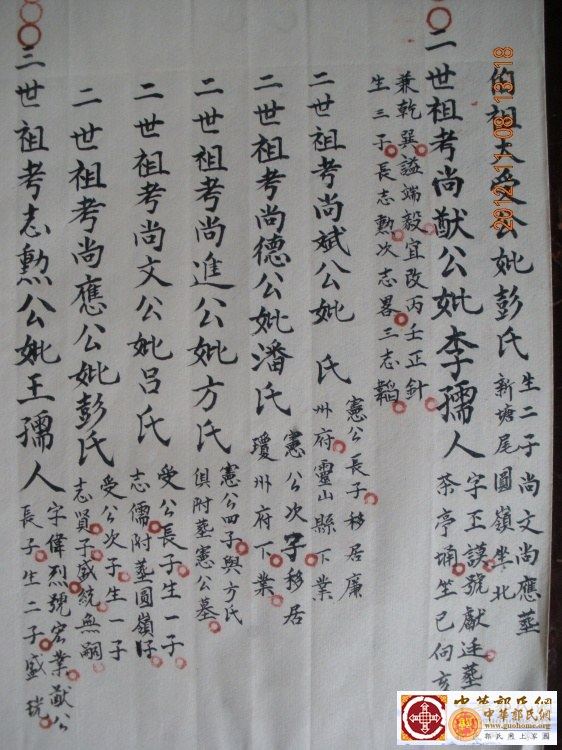 伯祖太受公妣彭氏
生二子尚文尚應葬
新塘尾圓嶺坐北
二世祖考尚猷公妣李孺人
字正謨號獻廷葬
茶亭 坐巳向亥
兼乾巽謚端毅宜改丙壬正針
生三子長志勲次志畧三志韜
二世祖考尚斌公妣 氏
憲公長子移居廉
州府靈山縣下業
二世祖考尚德公妣潘氏
憲公次子移居
瓊州府下業
二世祖考尚進公妣方氏
憲公四子與方氏
俱附葬憲公墓
二世祖考尚文公妣呂氏
受公長子生一子
志儒附葬圓嶺仔
二世祖考尚應公妣彭氏
受公次子生一子
志賢子盛統無嗣
三世祖考志勲公妣王孺人
字偉烈號宏業猷公
長子生二子盛瑞
2012.11.08 13:18
中華郭氏網
中華郭氏網
www.guohome.org
郭氏網上家園